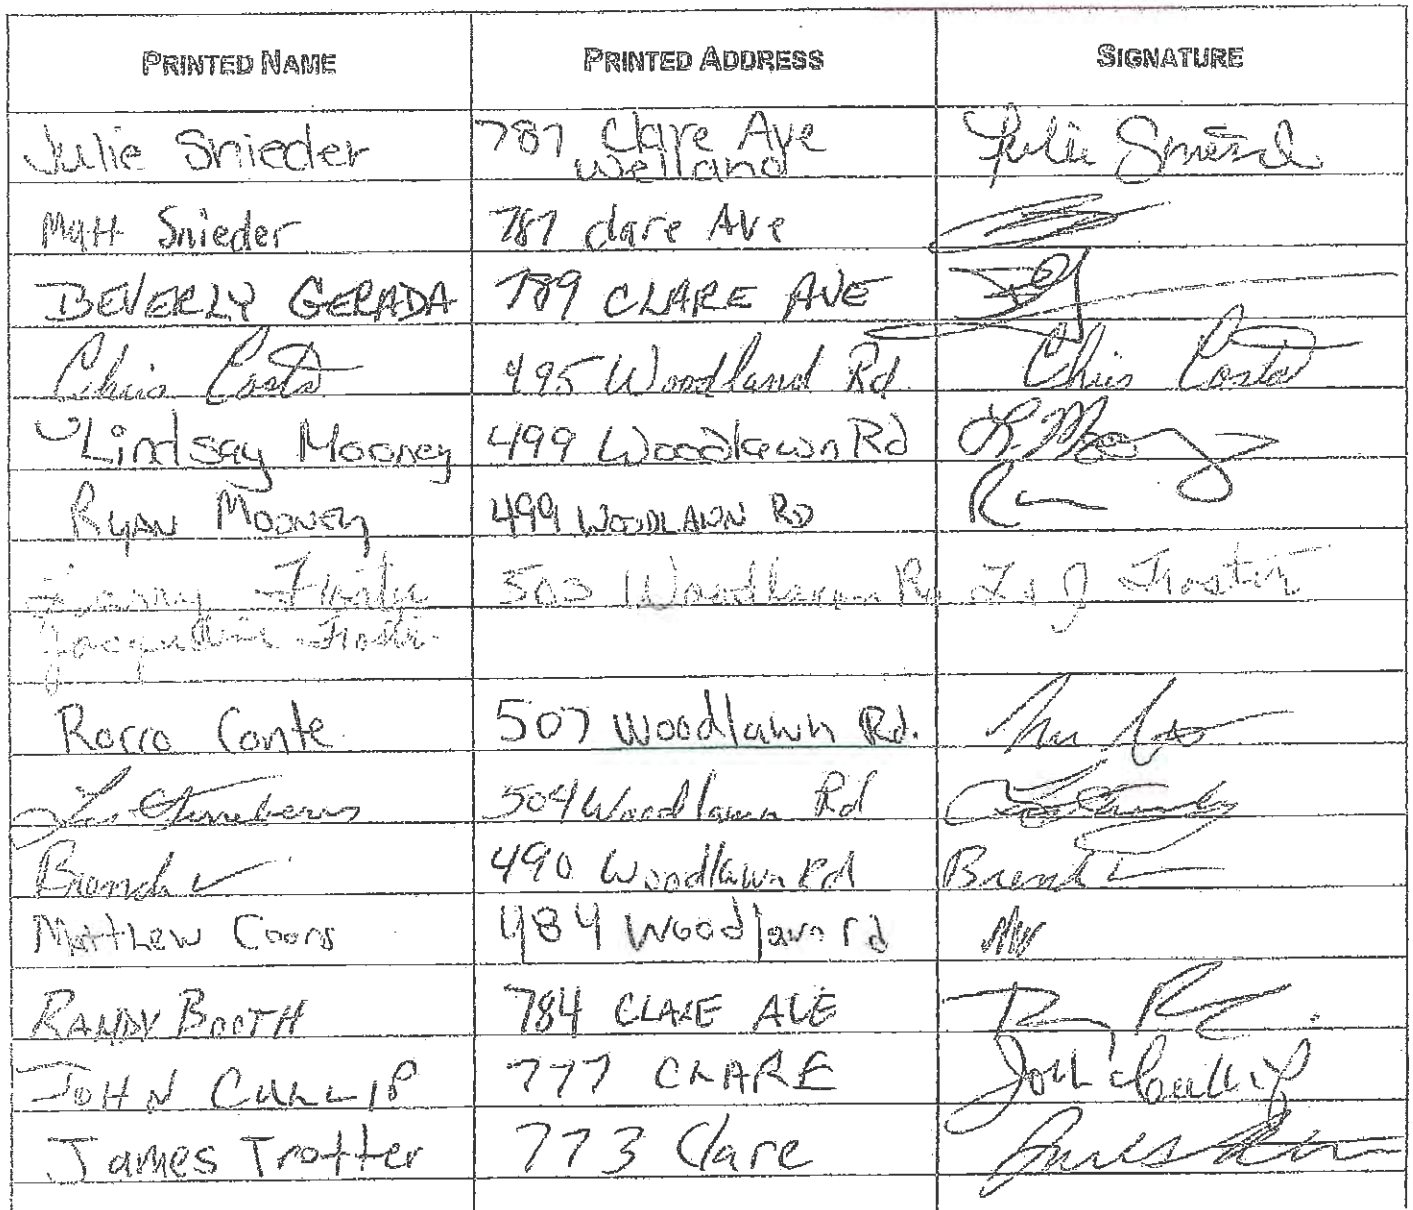 PRINTED NAME PRINTED ADDRESS SIGNATURE
Julie Snieder 787 Clare Ave Julie
Welland
Matt Snieder 787 clare Ave
BEVERLY GERADA 789 CLARE AVE
Chris Costa 495 Woodland Rd. Chris Costa
Lindsay Mooney 499 Woodlawn Rd L Mooney
RYAN MOONEY 499 WOODLAWN RD R
503 Woodlawn Rd L & J
Jacqueline
Rocco Conte 507 Woodlawn Rd.
504 Woodlawn Rd
490 Woodlawn Rd
Matthew Coons 484 Woodlawn rd
RANDY BOOTH 784 CLARE AVE
JOHN CULLIP 777 CLARE John Cullip
James Trotter 773 Clare James